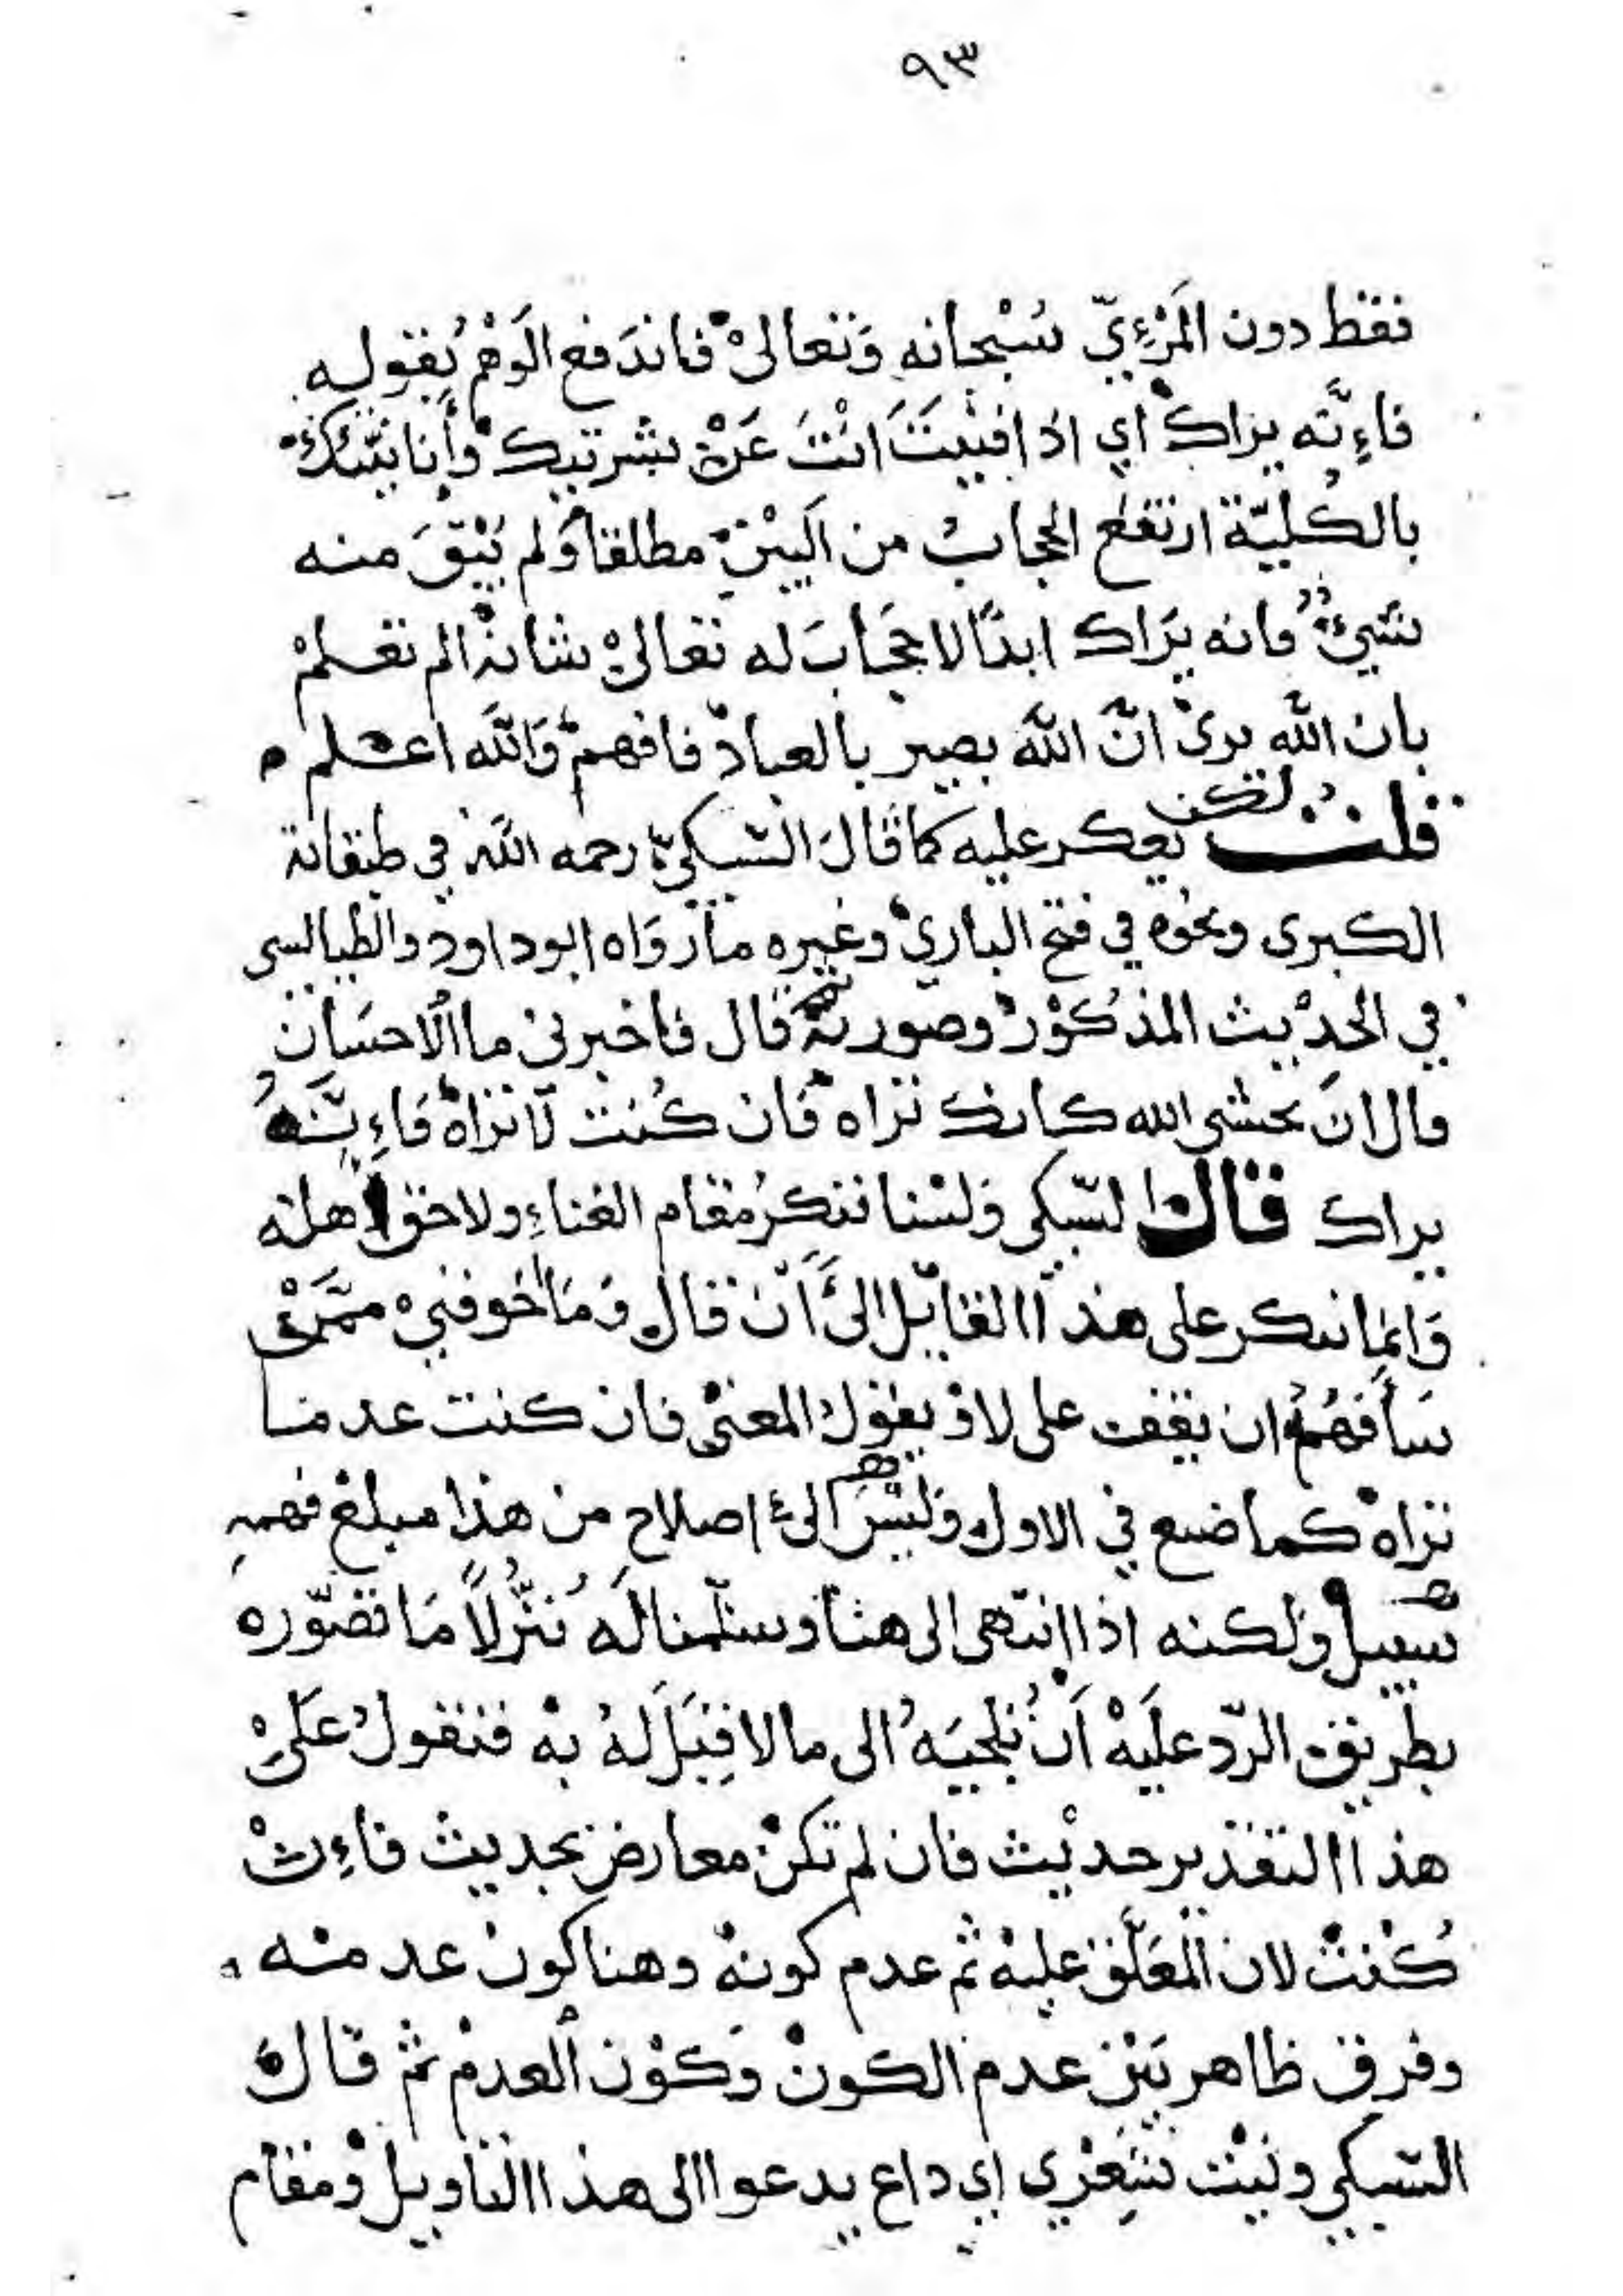 ٩٣
فقط دون المَرْءِيّ سُبْحانه وَتعالىْ فاندَفع الَوهْم بُقوله
فاءِنَّه يراك أي اذا فنيتَ انْتَ عَنْ بشرتيك وأنانيّتك
بالكُليّة ارتفع الحجابُ من البَيْنْ مطلقا وَلم يَبْقَ منه
شيءٌ فانه يَراك ابدًا لا حجَابَ له تعالىْ شانهْ الم تعلمْ
بان اللّه يرىْ انَّ اللّهَ بصير بالعبادْ فافهمْ وَاللّه اعلم
قلت لكن يعكر عليه كما قالَ السّبكيّ رحمه اللّه في طبقاته
الكبرى ونحوه في فتح الباريْ وغيره ما رَوَاه ابو داود والطيالسي
في الحدِيث المذكوْر وصورتهْ قال فاخبرنيْ ما الاحسَان
قال انَ تخشى الله كانك تراه فان كُنت لَا تراهْ فَاءِنَّهُ
يراك قال السّبكي وَلسْنا ننكرُ مقام الفناءِ ولا حق اهله
وَانما ننكر على هذا القايل الىَ أنْ قال وَمَا خوفنيْ ممَّنْ
سَأفهمُ ان يقف على لا ويقول المعنىْ فان كنت عدما
تراهْ كما صنع في الاول وَليْسَ الى اصلاحِ من هذا مبلغ فهمهِ
سبيل ولكنه اذا انتهى الى هنا وسلّمنا لَه تنزُّلاً مَا تصوّره
بطريق الرّد علَيْهْ اَنْ نُلجيَهُ الى ما لا قِبَلَ لهُ بهْ فنقولُ علىْ
هذا التقدير حديْث فان لم تكنْ معارض بحديث فاءِنْ
كُنتْ لان المُعَلَّق عليهْ ثم عدم كونهْ وهنا كون عدمه
وفرق ظاهر بَيْن عدم الكونْ وَكوْن العدمْ ثم قال
السّبكي وليْت شِعْري اي داع يدعوا الى هذا التاويل ومقام